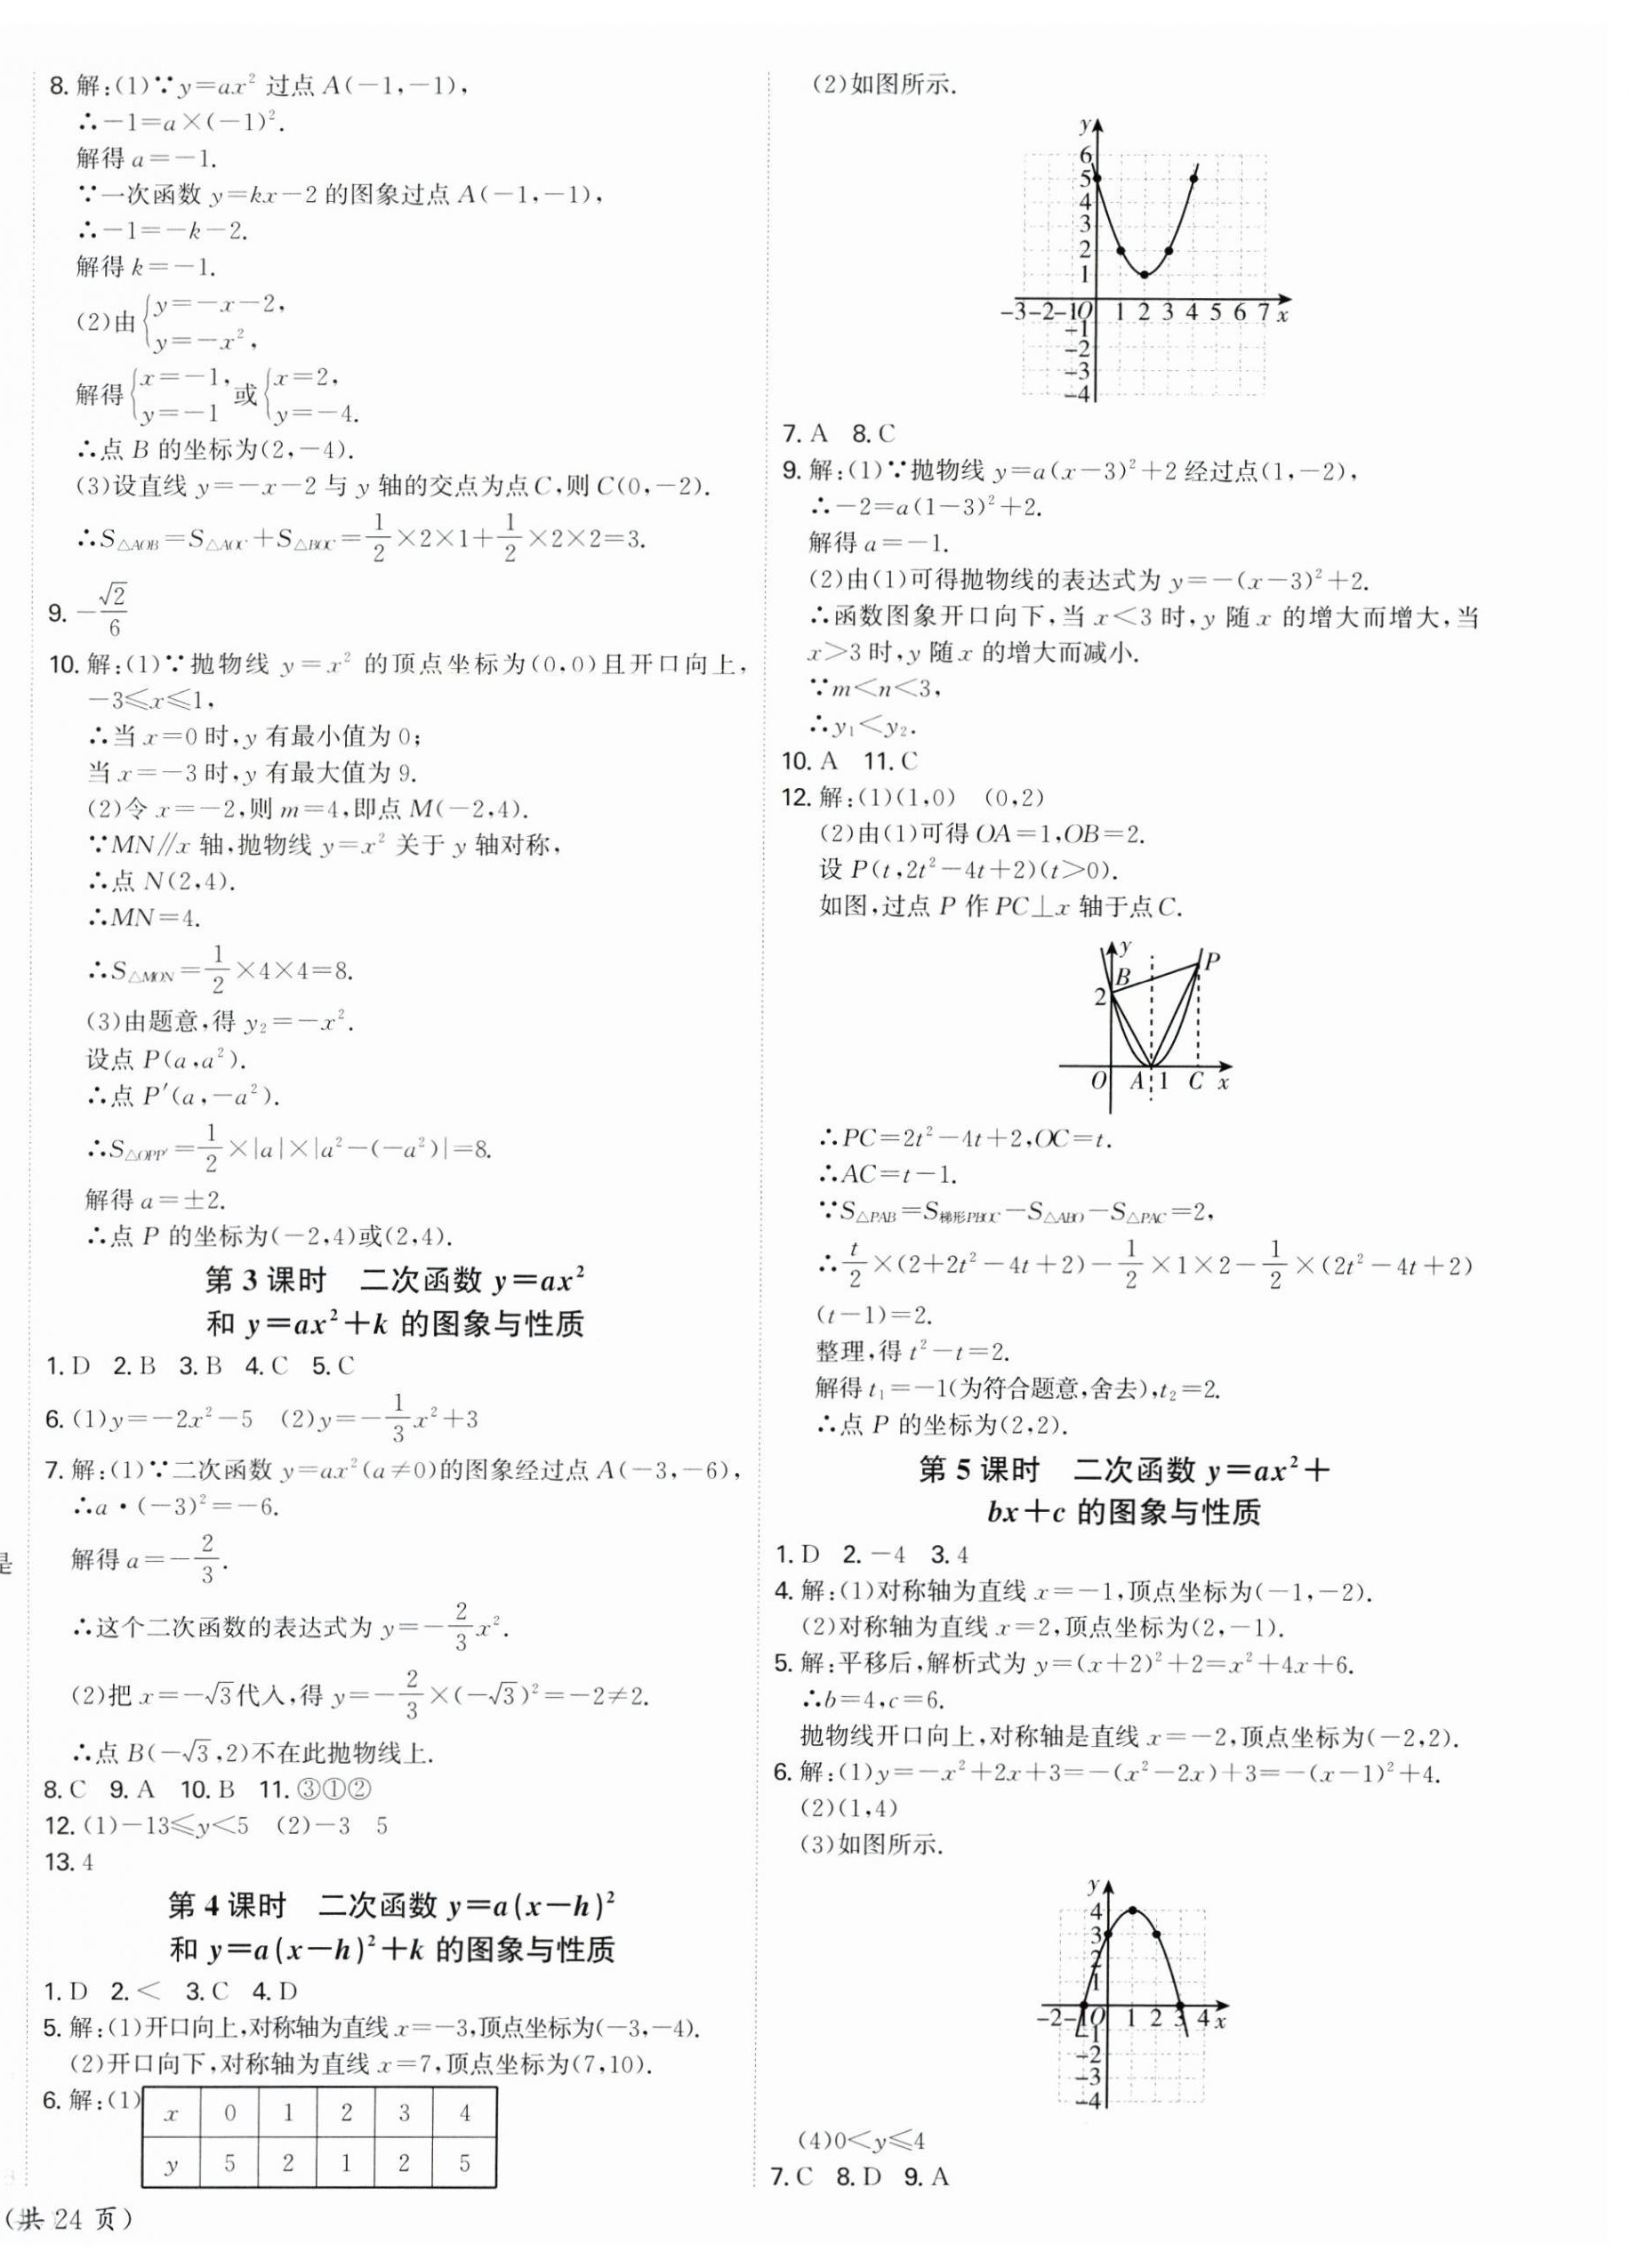 8. 解:(1)∵y=ax² 过点 A(-1,-1),
∴-1=a×(-1)².
解得 a=-1.
∵一次函数 y=kx-2 的图象过点 A(-1,-1),
∴-1=-k-2.
解得 k=-1.
(2)由{y=-x-2, y=-x²,
解得{x=-1, y=-1 或{x=2, y=-4.
∴点 B 的坐标为(2,-4).
(3)设直线 y=-x-2 与 y 轴的交点为点 C,则 C(0,-2).
∴S△AOB=S△AOC+S△BOC=1/2×2×1+1/2×2×2=3.
9. -√2/6
10. 解:(1)∵抛物线 y=x² 的顶点坐标为(0,0)且开口向上,
-3≤x≤1,
∴当 x=0 时,y 有最小值为 0;
当 x=-3 时,y 有最大值为 9.
(2)令 x=-2,则 m=4,即点 M(-2,4).
∵MN∥x 轴,抛物线 y=x² 关于 y 轴对称,
∴点 N(2,4).
∴MN=4.
∴S△MON=1/2×4×4=8.
(3)由题意,得 y₂=-x².
设点 P(a,a²).
∴点 P′(a,-a²).
∴S△OPP′=1/2×|a|×|a²-(-a²)|=8.
解得 a=±2.
∴点 P 的坐标为(-2,4)或(2,4).
第 3 课时 二次函数 y=ax²
和 y=ax²+k 的图象与性质
1. D 2. B 3. B 4. C 5. C
6. (1)y=-2x²-5 (2)y=-1/3x²+3
7. 解:(1)∵二次函数 y=ax²(a≠0)的图象经过点 A(-3,-6),
∴a·(-3)²=-6.
解得 a=-2/3.
∴这个二次函数的表达式为 y=-2/3x².
(2)把 x=-√3代入,得 y=-2/3×(-√3)²=-2≠2.
∴点 B(-√3,2)不在此抛物线上.
8. C 9. A 10. B 11. ③①②
12. (1)-13≤y<5 (2)-3 5
13. 4
第 4 课时 二次函数 y=a(x-h)²
和 y=a(x-h)²+k 的图象与性质
1. D 2. < 3. C 4. D
5. 解:(1)开口向上,对称轴为直线 x=-3,顶点坐标为(-3,-4).
(2)开口向下,对称轴为直线 x=7,顶点坐标为(7,10).
6. 解:(1)
x 0 1 2 3 4
y 5 2 1 2 5
是
(共 24 页)
(2)如图所示.
y
6
5
4
3
2
1
-3 -2 -1 O 1 2 3 4 5 6 7 x
-1
-2
-3
-4
7. A 8. C
9. 解:(1)∵抛物线 y=a(x-3)²+2 经过点(1,-2),
∴-2=a(1-3)²+2.
解得 a=-1.
(2)由(1)可得抛物线的表达式为 y=-(x-3)²+2.
∴函数图象开口向下,当 x<3 时,y 随 x 的增大而增大,当
x>3 时,y 随 x 的增大而减小.
∵m<n<3,
∴y₁<y₂.
10. A 11. C
12. 解:(1)(1,0) (0,2)
(2)由(1)可得 OA=1,OB=2.
设 P(t,2t²-4t+2)(t>0).
如图,过点 P 作 PC⊥x 轴于点 C.
y
B P
2
O A 1 C x
∴PC=2t²-4t+2,OC=t.
∴AC=t-1.
∵S△PAB=S梯形PBOC-S△ABO-S△PAC=2,
∴t/2×(2+2t²-4t+2)-1/2×1×2-1/2×(2t²-4t+2)
(t-1)=2.
整理,得 t²-t=2.
解得 t₁=-1(为符合题意,舍去),t₂=2.
∴点 P 的坐标为(2,2).
第 5 课时 二次函数 y=ax²+
bx+c 的图象与性质
1. D 2. -4 3. 4
4. 解:(1)对称轴为直线 x=-1,顶点坐标为(-1,-2).
(2)对称轴为直线 x=2,顶点坐标为(2,-1).
5. 解:平移后,解析式为 y=(x+2)²+2=x²+4x+6.
∴b=4,c=6.
抛物线开口向上,对称轴是直线 x=-2,顶点坐标为(-2,2).
6. 解:(1)y=-x²+2x+3=-(x²-2x)+3=-(x-1)²+4.
(2)(1,4)
(3)如图所示.
y
4
3
2
1
-2 -1 O 1 2 3 4 x
-1
-2
-3
-4
(4)0<y≤4
7. C 8. D 9. A